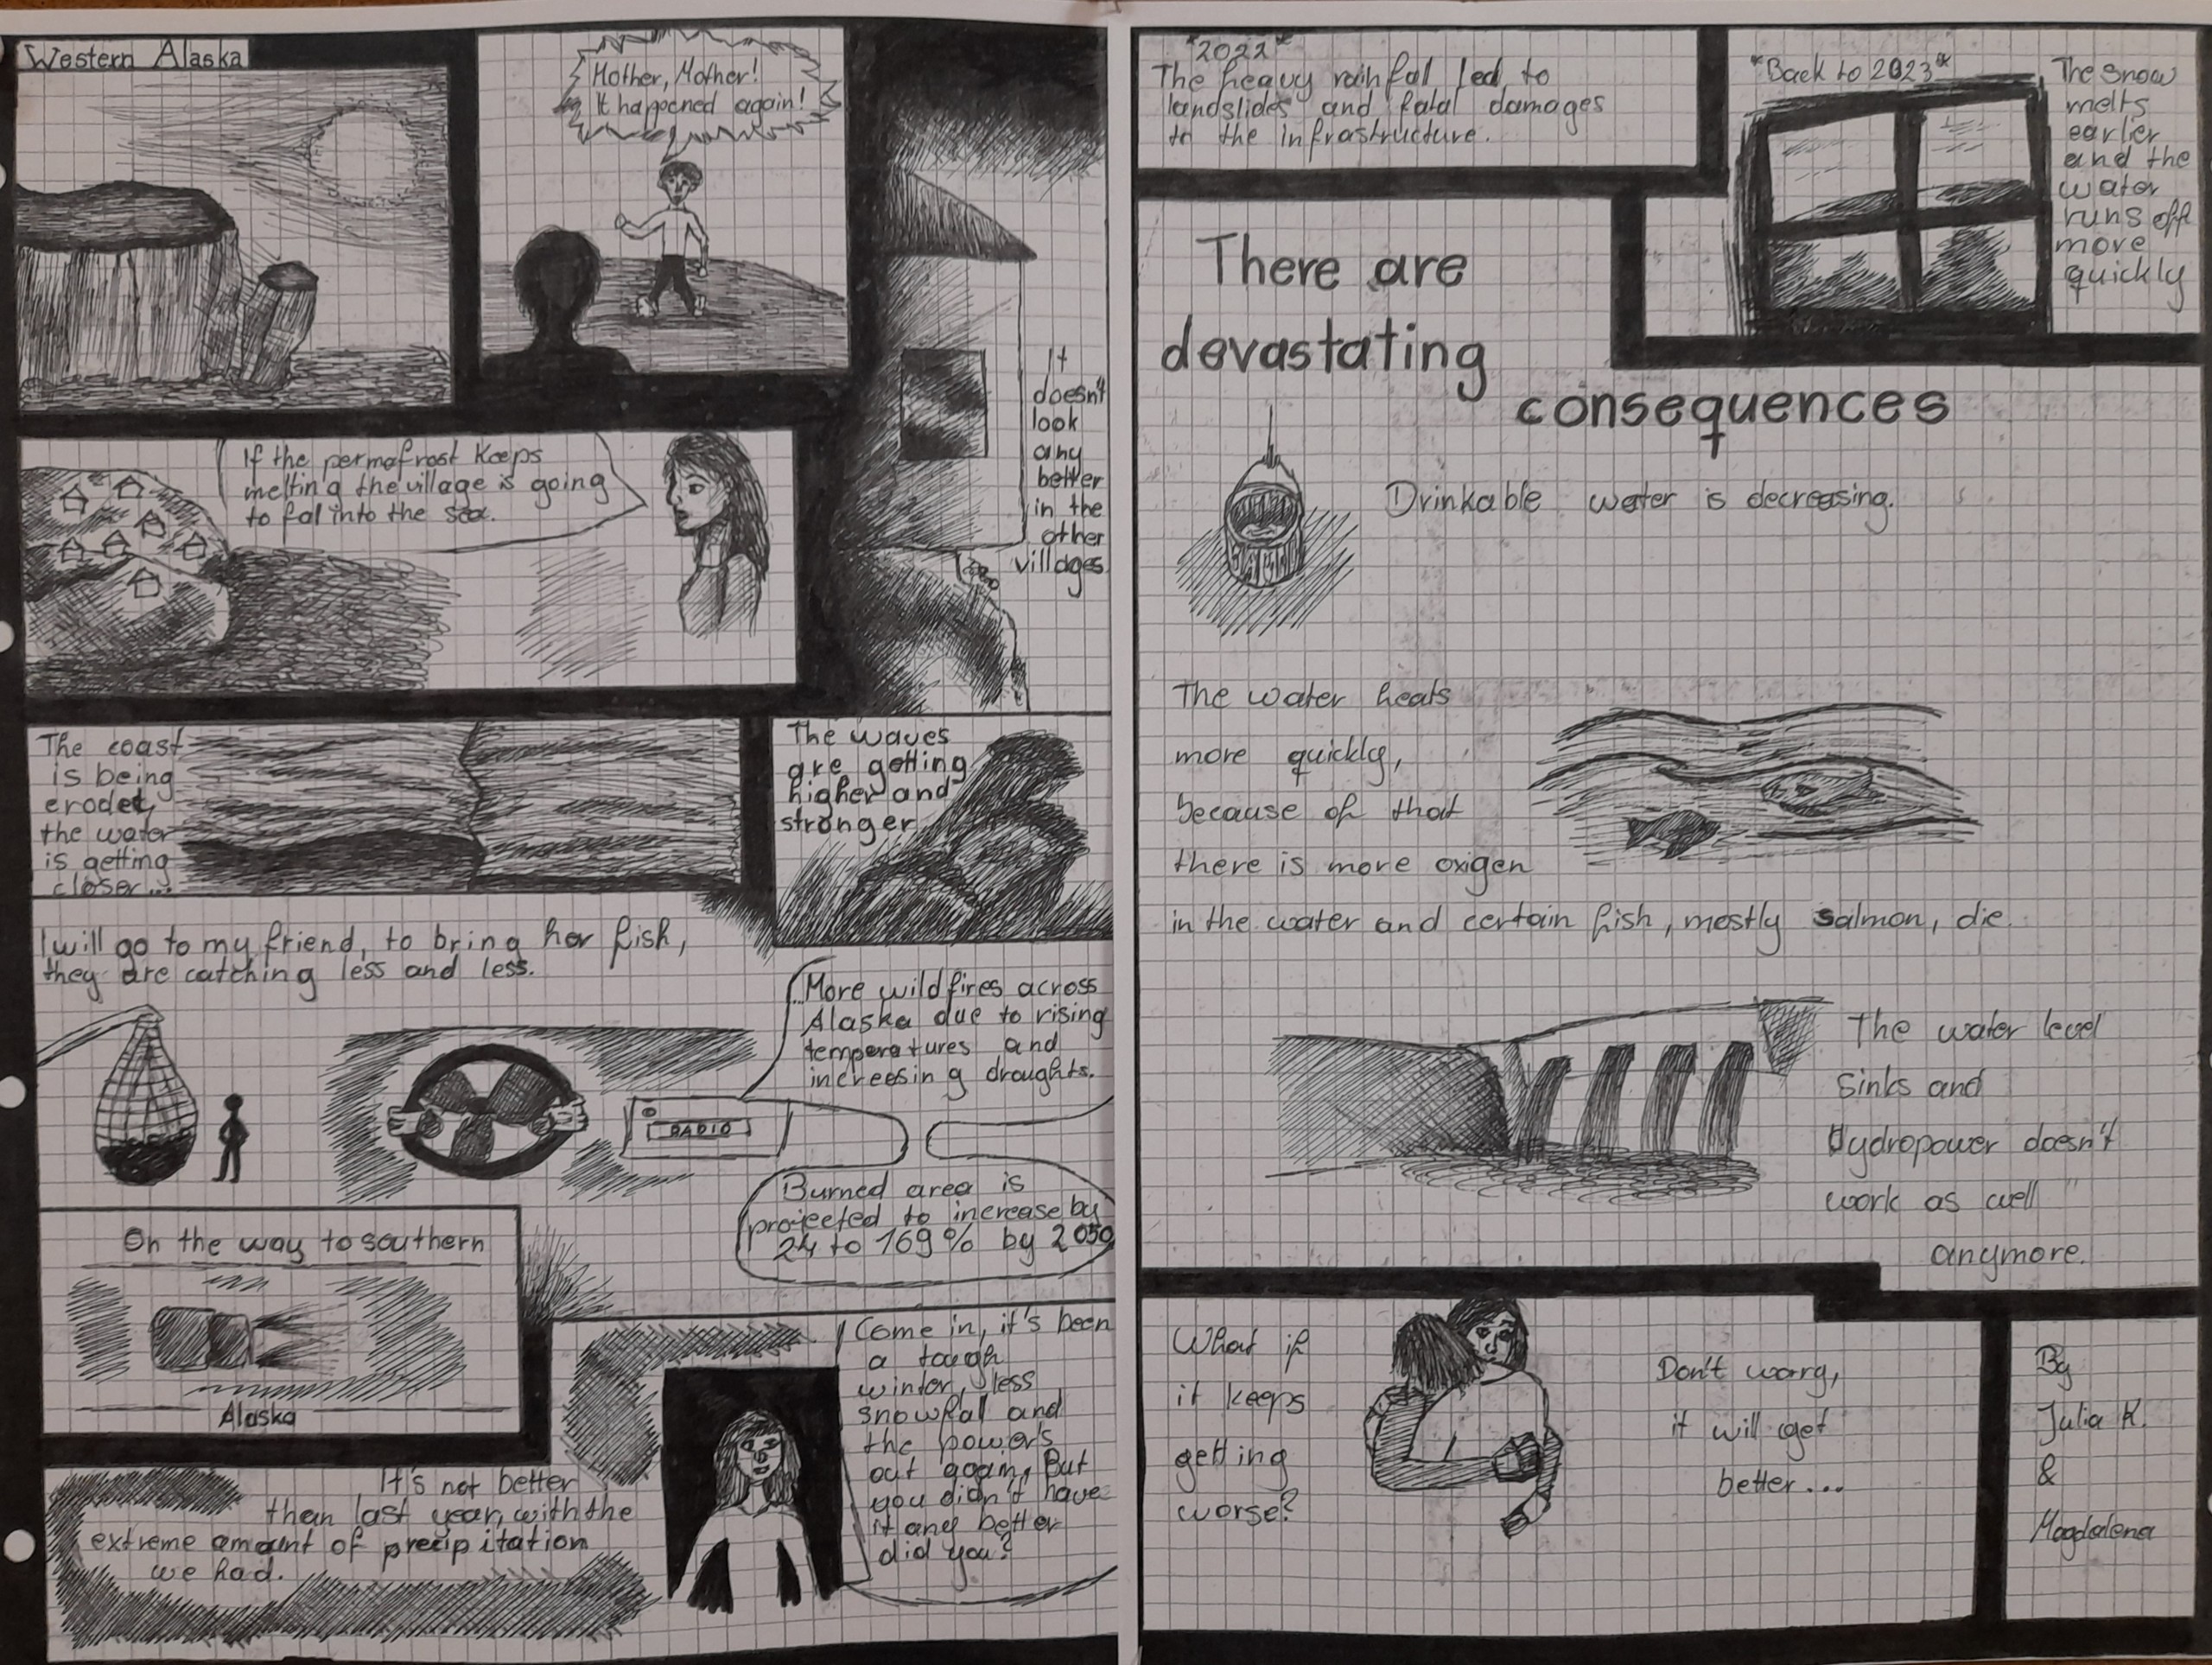 Western Alaska
Mother, Mother!
It happened again!
If the permafrost keeps
melting the village is going
to fal into the sea.
It
doesn't
look
any
better
in the
other
villages.
The coast
is being
erodet,
the water
is getting
closer...
The waves
are getting
higher and
stronger
I will go to my friend, to bring her fish,
they are catching less and less.
...More wildfires across
Alaska due to rising
temperatures and
increesing droughts.
RADIO
Burned area is
projected to increase by
24 to 169% by 2050
On the way to southern
Alaska
Come in, it's been
a tough
winter, less
snowfal and
the powers
out again. But
you didn't have
it any better
did you?
It's not better
then last year, with the
extreme amount of precipitation
we had.
*2022*
The heavy rainfal led to
landslides and fatal damages
to the infrastructure.
*Back to 2023*
The snow
melts
earlier
and the
water
runs off
more
quickly
There are
devastating
consequences
Drinkable water is decreasing.
The water heats
more quickly,
because of that
there is more oxigen
in the water and certain fish, mostly salmon, die.
The water level
sinks and
Hydropower doesn't
work as well
anymore.
What if
it keeps
getting
worse?
Don't worry,
it will get
better...
By
Julia K.
&
Magdalena